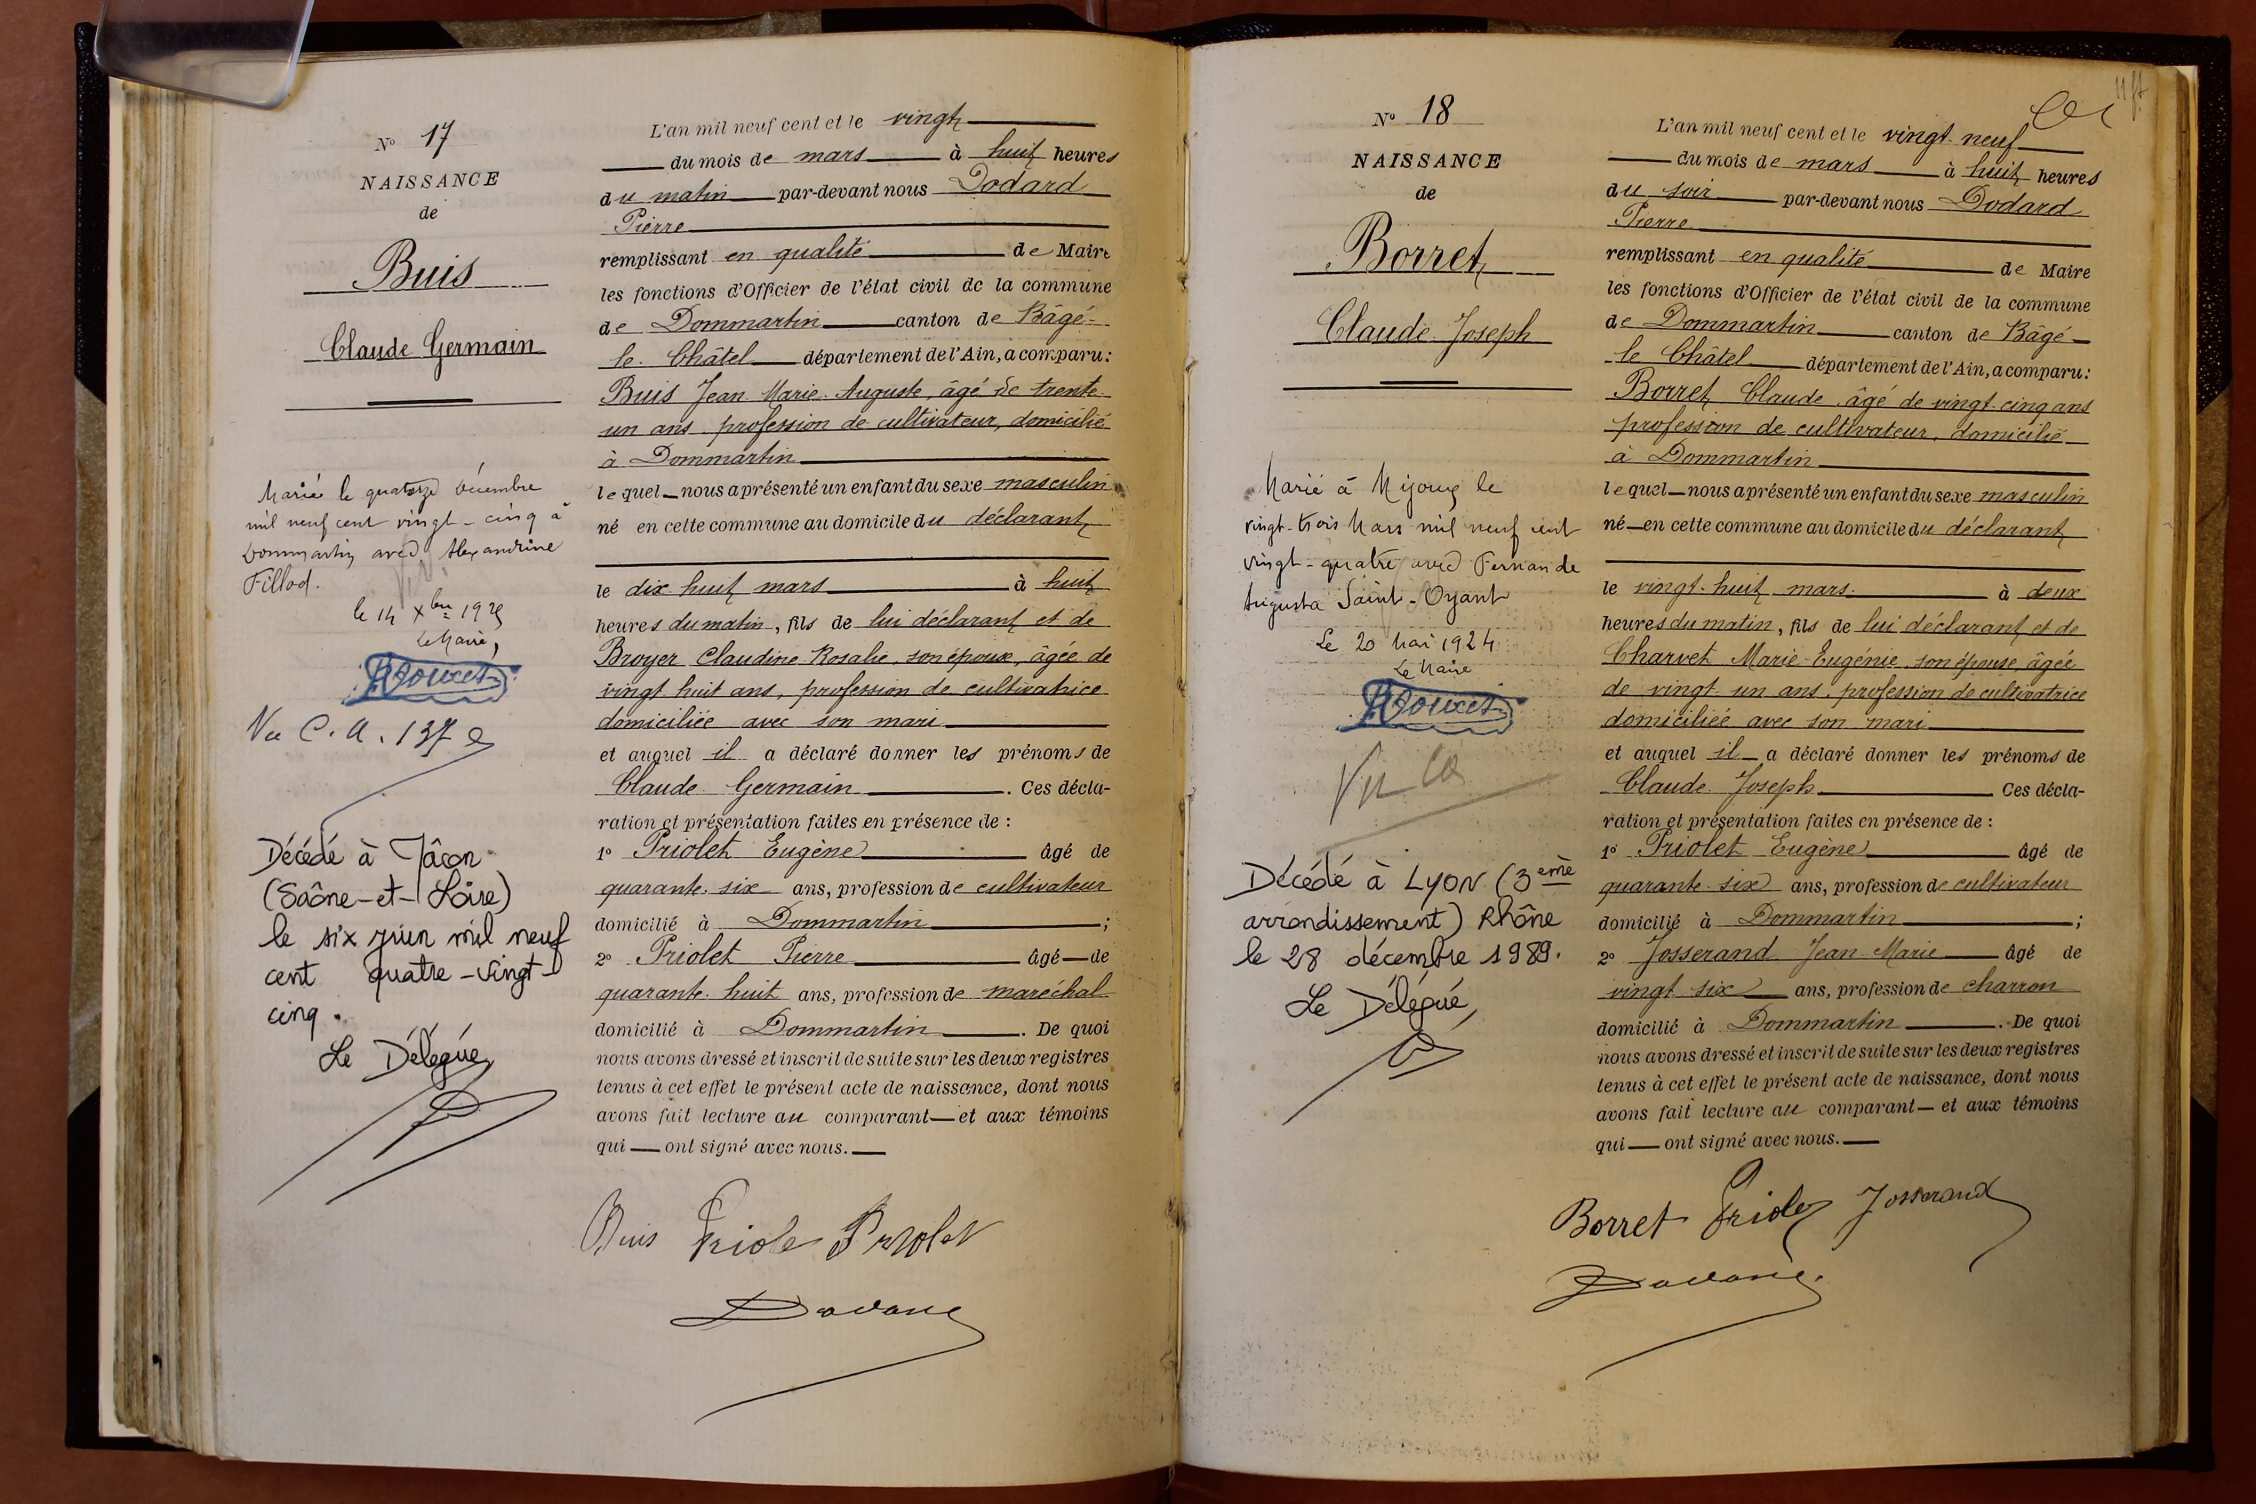 N° 17
NAISSANCE
de
Buis
Claude Germain
Marié le quatorze décembre
mil neuf cent vingt-cinq à
Dommartin avec Alexandrine
Fillod.
le 14 Xbre 1925
Le Maire,
Vu C.A. 137
Décédé à Mâcon
(Saône-et-Loire)
le six juin mil neuf
cent quatre-vingt-
cinq.
Le Délégué,
L'an mil neuf cent et le vingt
du mois de mars à huit heures
du matin par-devant nous Dodard
Pierre
remplissant en qualité de Maire
les fonctions d'Officier de l'état civil de la commune
de Dommartin canton de Bâgé-
le Châtel département de l'Ain, a comparu:
Buis Jean Marie Auguste, âgé de trente
un ans, profession de cultivateur, domicilié
à Dommartin
lequel nous a présenté un enfant du sexe masculin
né en cette commune au domicile du déclarant
le dix huit mars à huit
heures du matin, fils de lui déclarant et de
Broyer Claudine Rosalie, son époux, âgée de
vingt huit ans, profession de cultivatrice
domiciliée avec son mari
et auquel il a déclaré donner les prénoms de
Claude Germain. Ces décla-
ration et présentation faites en présence de :
1° Priolet Eugène âgé de
quarante six ans, profession de cultivateur
domicilié à Dommartin ;
2° Priolet Pierre âgé de
quarante huit ans, profession de maréchal
domicilié à Dommartin. De quoi
nous avons dressé et inscrit de suite sur les deux registres
tenus à cet effet le présent acte de naissance, dont nous
avons fait lecture au comparant et aux témoins
qui ont signé avec nous.
Buis Priolet Priolet
N° 18
NAISSANCE
de
Borret
Claude Joseph
Marié à Mijoux le
vingt-trois Mars mil neuf cent
vingt-quatre avec Fernande
Augusta Saint-Oyant
Le 20 Mai 1924
Le Maire
Vu
Décédé à LYON (3ème
arrondissement) Rhône
le 28 décembre 1989.
Le Délégué,
L'an mil neuf cent et le vingt-neuf
du mois de mars à huit heures
du soir par-devant nous Dodard
Pierre
remplissant en qualité de Maire
les fonctions d'Officier de l'état civil de la commune
de Dommartin canton de Bâgé-
le Châtel département de l'Ain, a comparu:
Borret Claude âgé de vingt cinq ans
profession de cultivateur, domicilié
à Dommartin
lequel nous a présenté un enfant du sexe masculin
né en cette commune au domicile du déclarant
le vingt-huit mars à deux
heures du matin, fils de lui déclarant et de
Charvet Marie-Eugénie, son épouse, âgée
de vingt-un ans, profession de cultivatrice
domiciliée avec son mari
et auquel il a déclaré donner les prénoms de
Claude Joseph Ces décla-
ration et présentation faites en présence de :
1° Priolet Eugène âgé de
quarante six ans, profession de cultivateur
domicilié à Dommartin ;
2° Josserand Jean Marie âgé de
vingt six ans, profession de charron
domicilié à Dommartin. De quoi
nous avons dressé et inscrit de suite sur les deux registres
tenus à cet effet le présent acte de naissance, dont nous
avons fait lecture au comparant et aux témoins
qui ont signé avec nous.
Borret Priolet Josserand